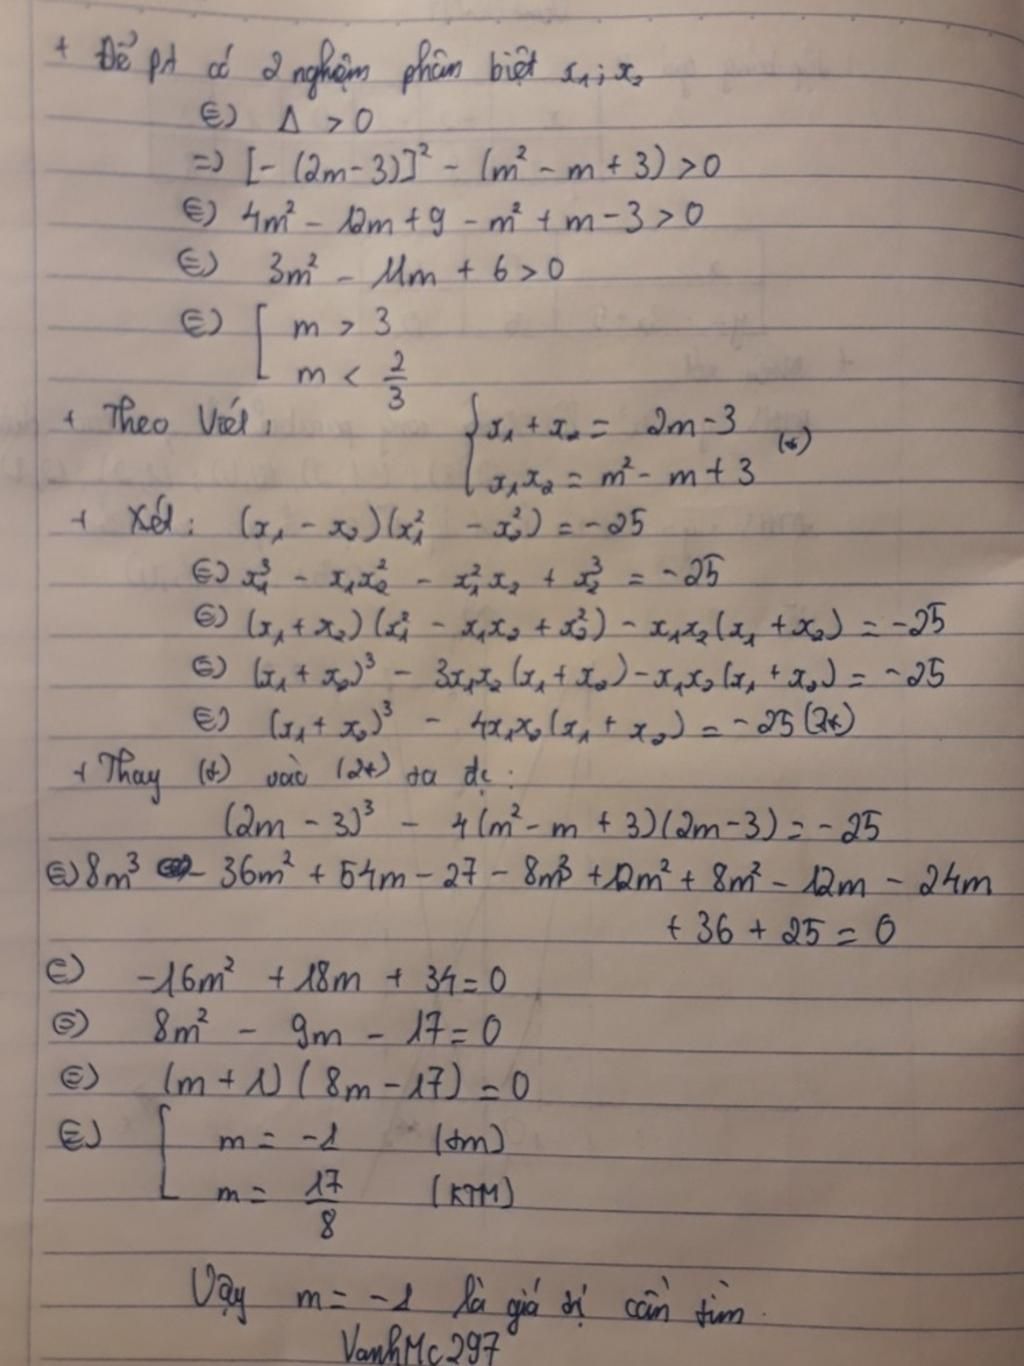 + Để pt có 2 nghiệm phân biệt x₁; x₂
⇔ Δ > 0
=> [- (2m - 3)]² - (m² - m + 3) > 0
⇔ 4m² - 12m + 9 - m² + m - 3 > 0
⇔ 3m² - 11m + 6 > 0
⇔ [ m > 3
m < 2/3
+ Theo Viét: { x₁ + x₂ = 2m - 3 (*)
x₁x₂ = m² - m + 3
+ Xét: (x₁ - x₂)(x₁² - x₂²) = -25
⇔ x₁³ - x₁x₂² - x₁²x₂ + x₂³ = -25
⇔ (x₁ + x₂)(x₁² - x₁x₂ + x₂²) - x₁x₂(x₁ + x₂) = -25
⇔ (x₁ + x₂)³ - 3x₁x₂(x₁ + x₂) - x₁x₂(x₁ + x₂) = -25
⇔ (x₁ + x₂)³ - 4x₁x₂(x₁ + x₂) = -25 (2*)
+ Thay (*) vào (2*) ta đc:
(2m - 3)³ - 4(m² - m + 3)(2m - 3) = -25
⇔ 8m³ - 36m² + 54m - 27 - 8m³ + 12m² + 8m² - 12m - 24m
+ 36 + 25 = 0
⇔ -16m² + 18m + 34 = 0
⇔ 8m² - 9m - 17 = 0
⇔ (m + 1)(8m - 17) = 0
⇔ [ m = -1 (tm)
m = 17/8 (KTM)
Vậy m = -1 là giá trị cần tìm.
VanhMc297